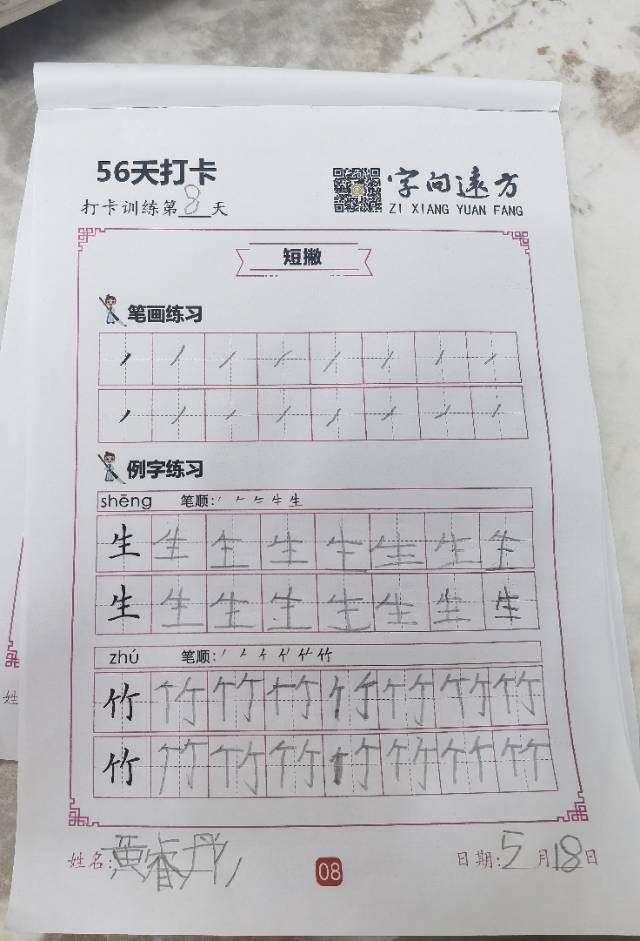 56天打卡
打卡训练第8天
字向远方
ZI XIANG YUAN FANG
短撇
笔画练习
例字练习
shēng 笔顺:
生 生 生 生 生 生 生 生
生 生 生 生 生 生 生 生
zhú 笔顺:
竹 竹 竹 竹 竹 竹 竹 竹
竹 竹 竹 竹 竹 竹 竹 竹
姓名:黄睿丹
08
日期:5月18日
姓